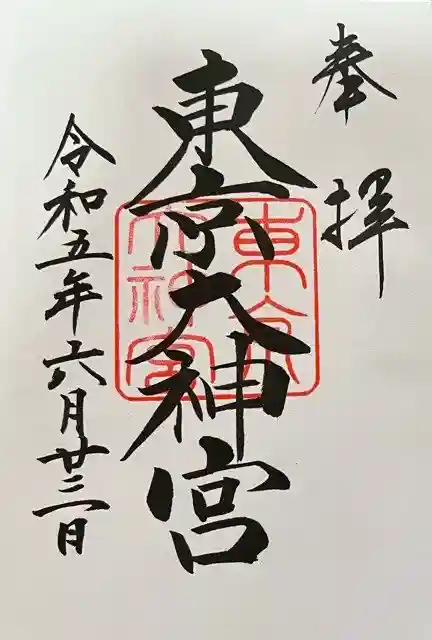 奉拝
東京大神宮
東京
大神宮
令和五年六月廿三日